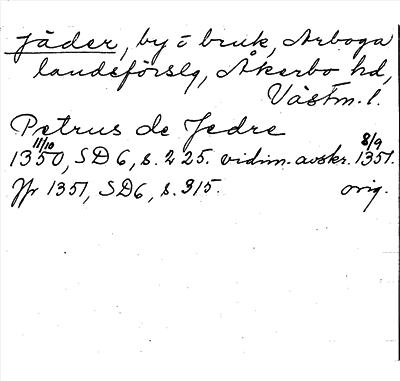 Jäder, by o bruk, Arboga
landsförslg, Åkerbo hd,
Västm. l.
Petrus de Jedre
1350 11/10, SD 6, s. 225. vidim. avskr. 1351 8/9.
Jfr 1351, SD6, s. 315. orig.